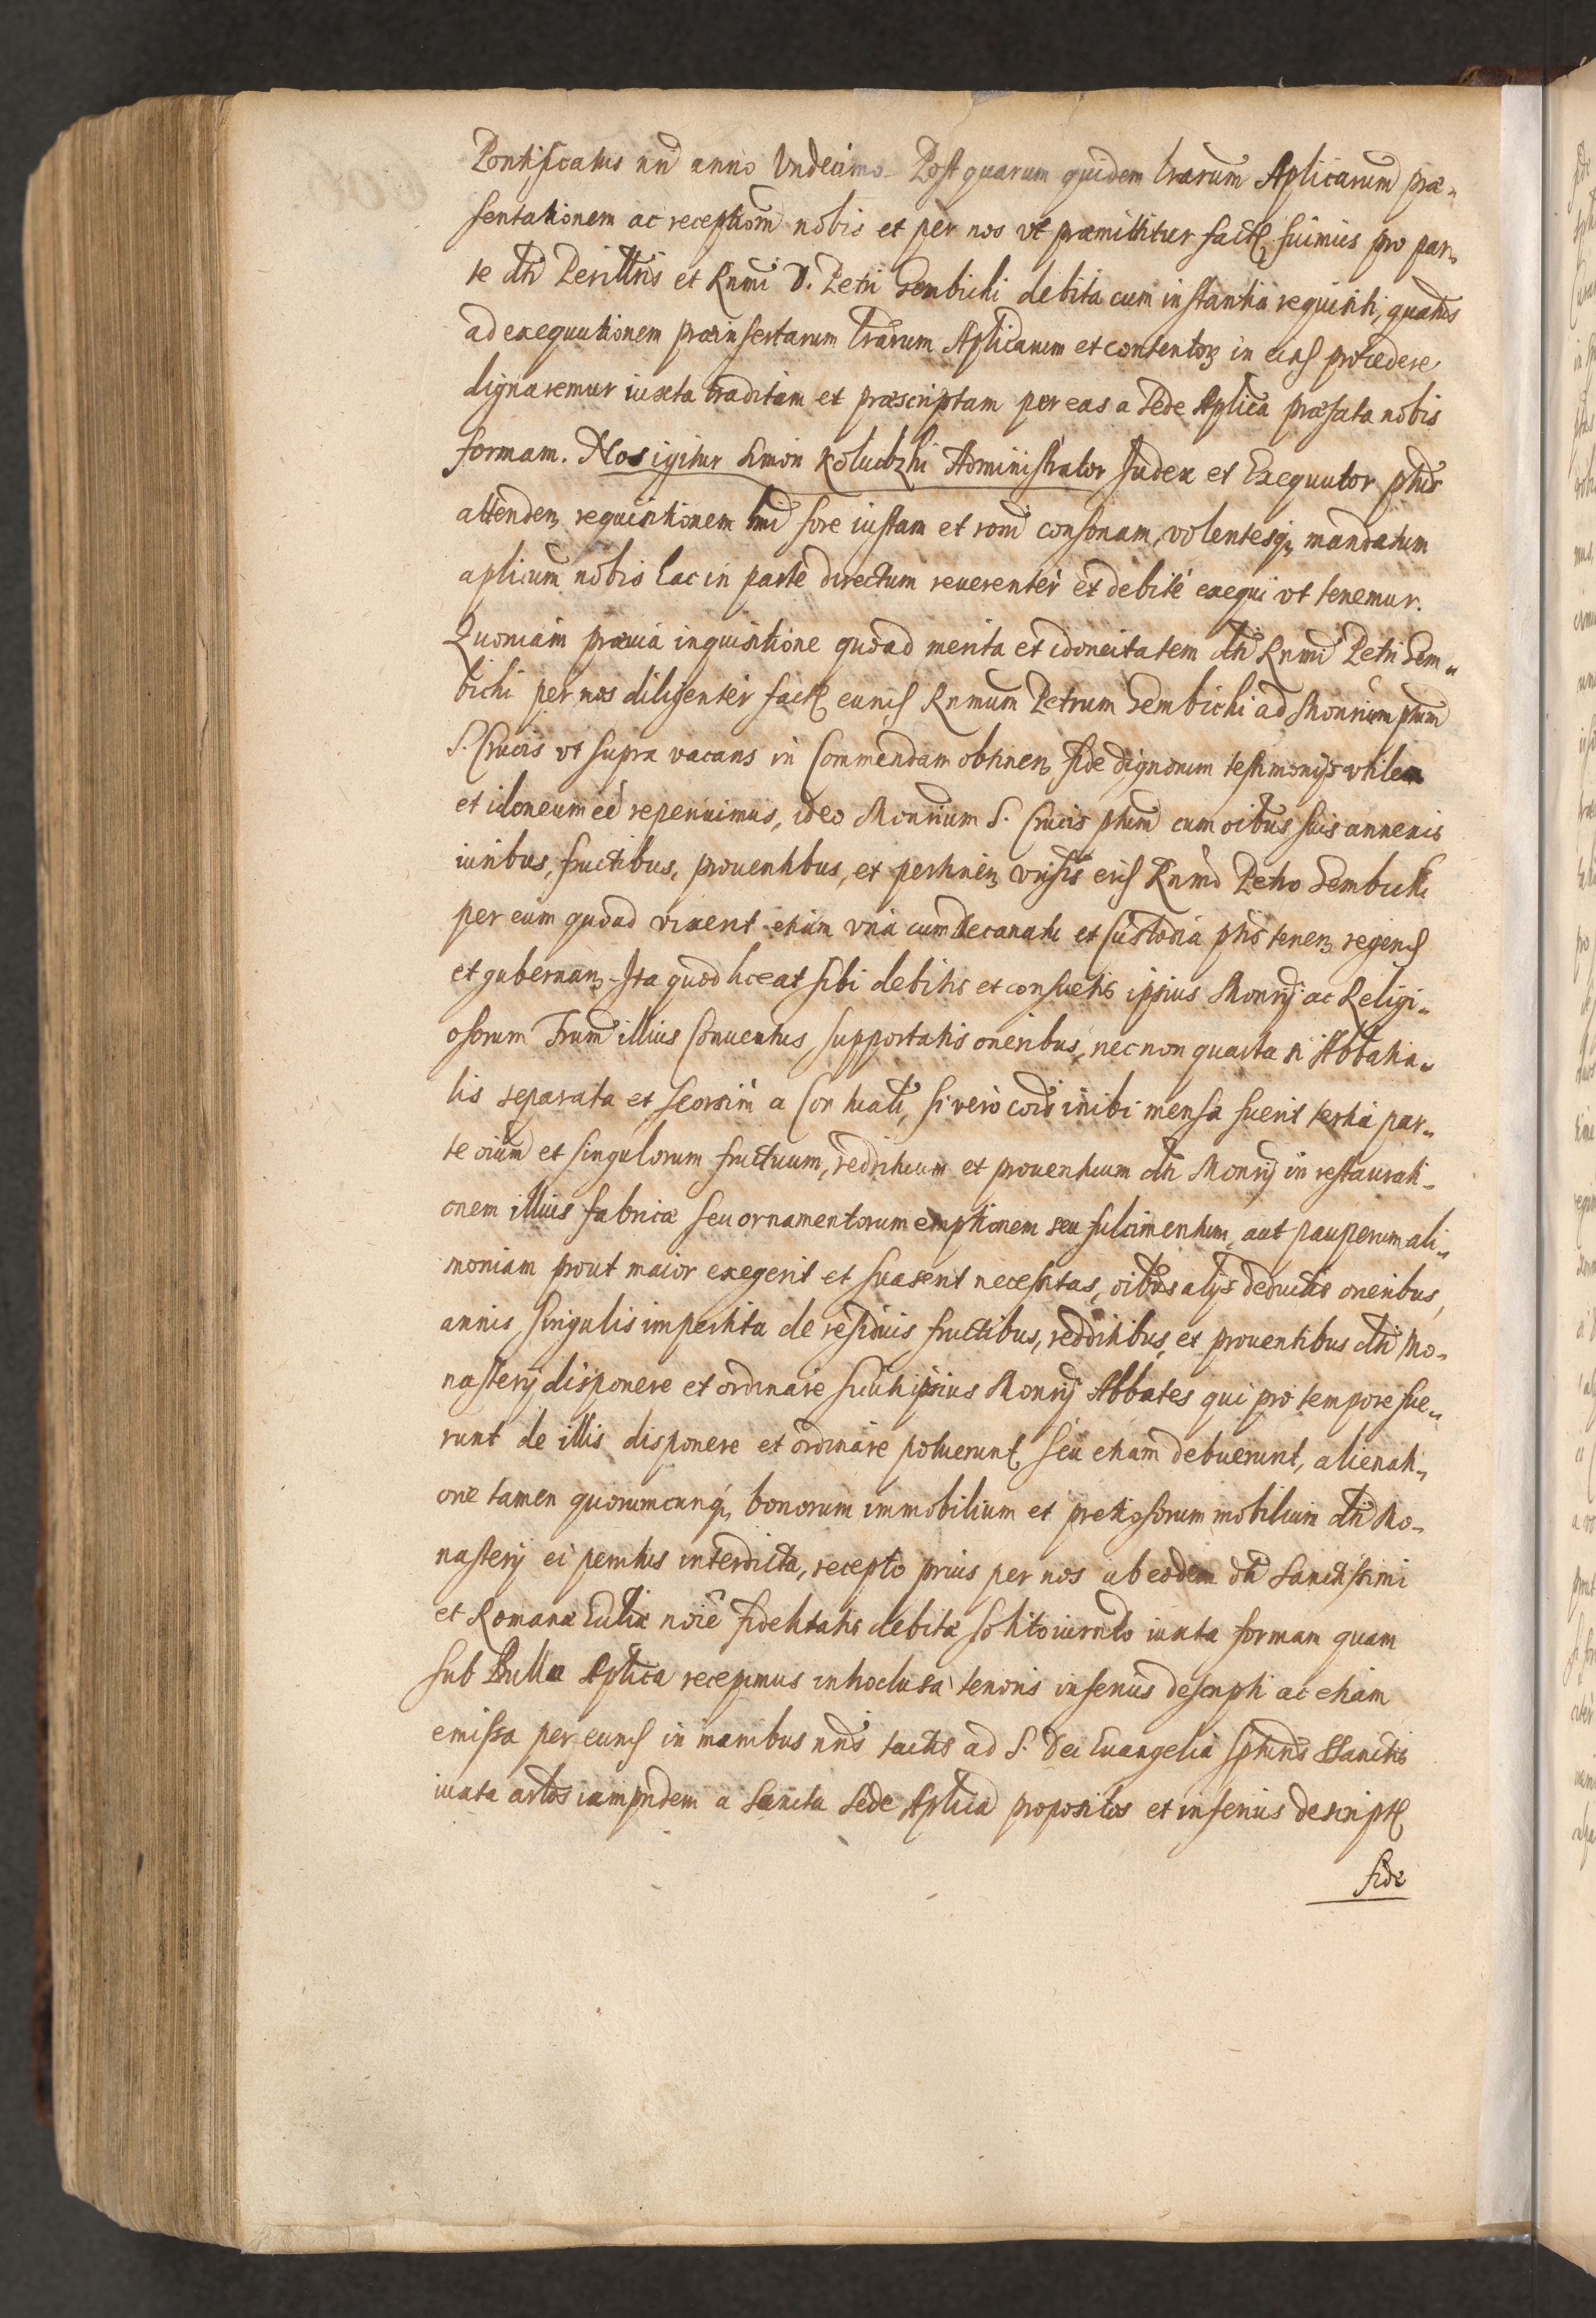 Pontificatus nri anno Vndecimo. Post quarum quidem lrarum Aplicarum præ-
sentationem ac receptiom nobis et per nos vt præmittitur fact. fuimus pro par-
te dti Perillris et Rnmi D. Petri Gembichi debita cum instantia requisiti, quatus
ad exequutionem præinsertarum lrarum Aplicarum et contentorz in eisd procedere
dignaremur iuxta traditam et præscriptam per eas a Sede Aplica præfata nobis
formam. Nos igitur Simon Koludzki Administrator Judex et Exequutor phts
attenden, requisitionem hmoi fore iustam et roni consonam, volentesq, mandatum
aplicum nobis hac in parte directum reuerenter et debite exequi vt tenemur.
Quoniam præuia inquisitione quoad merita et idoneitatem dti Rnmi Petri Gem-
bichi per nos diligenter fact. eund Rnmum Petrum Gembichi ad Monrium phtum
S. Crucis vt supra vacans in Commendam obtinen, fide dignorum testimonijs vtilem
et idoneum eé reperuimus, ideo Monrium S. Crucis phtum cum oibus suis annexis
iuribus, fructibus, prouentibus, et pertinen, vnisis eid Rnmo Petro Gembichi
per eum quoad vixerit etiam vna cum Decanatu et Custodia phts tenen, regend
et gubernan, Ita quod liceat sibi debitis et consuetis ipsius Monrij ac Religi-
osorum Frum illius Conuentus supportatis oneribus, necnon quarta si Abbatia-
lis separata et seorsim a Con[uen]tuali, si vero cois inibi mensa fuerit tertia par-
te oium et singulorum fructuum, reddituum et prouentuum dti Monrij in restaurati-
onem illius fabricæ seu ornamentorum emptionem seu fulcimentum, aut pauperum ali-
moniam prout maior exegerit et suaserit necessitas, oibus alijs deductis oneribus,
annis singulis impertita de residuis fructibus, redditibus, et prouentibus dti Mo-
nasterij disponere et ordinare sicuti ipsius Monrij Abbates qui pro tempore fue-
runt de illis disponere et ordinare potuerunt seu etiam debuerunt, alienati-
one tamen quorumcunq, bonorum immobilium et pretiosorum mobilium dti Mo-
nasterij ei penitus interdicta, recepto prius per nos ab eodem dti Sanctissimi
et Romanæ Eccliæ noie fidelitatis debitæ solito iurndo iuxta formam quam
sub Bulla Aplica recepimus introclusa tenoris inferius descripti ac etiam
emissa per eund in manibus nris tactis ad S. Dei Euangelia spturis Sanctis
iuxta artlos iampridem a Sancta Sede Aplica propositos et inferius descript.
fide